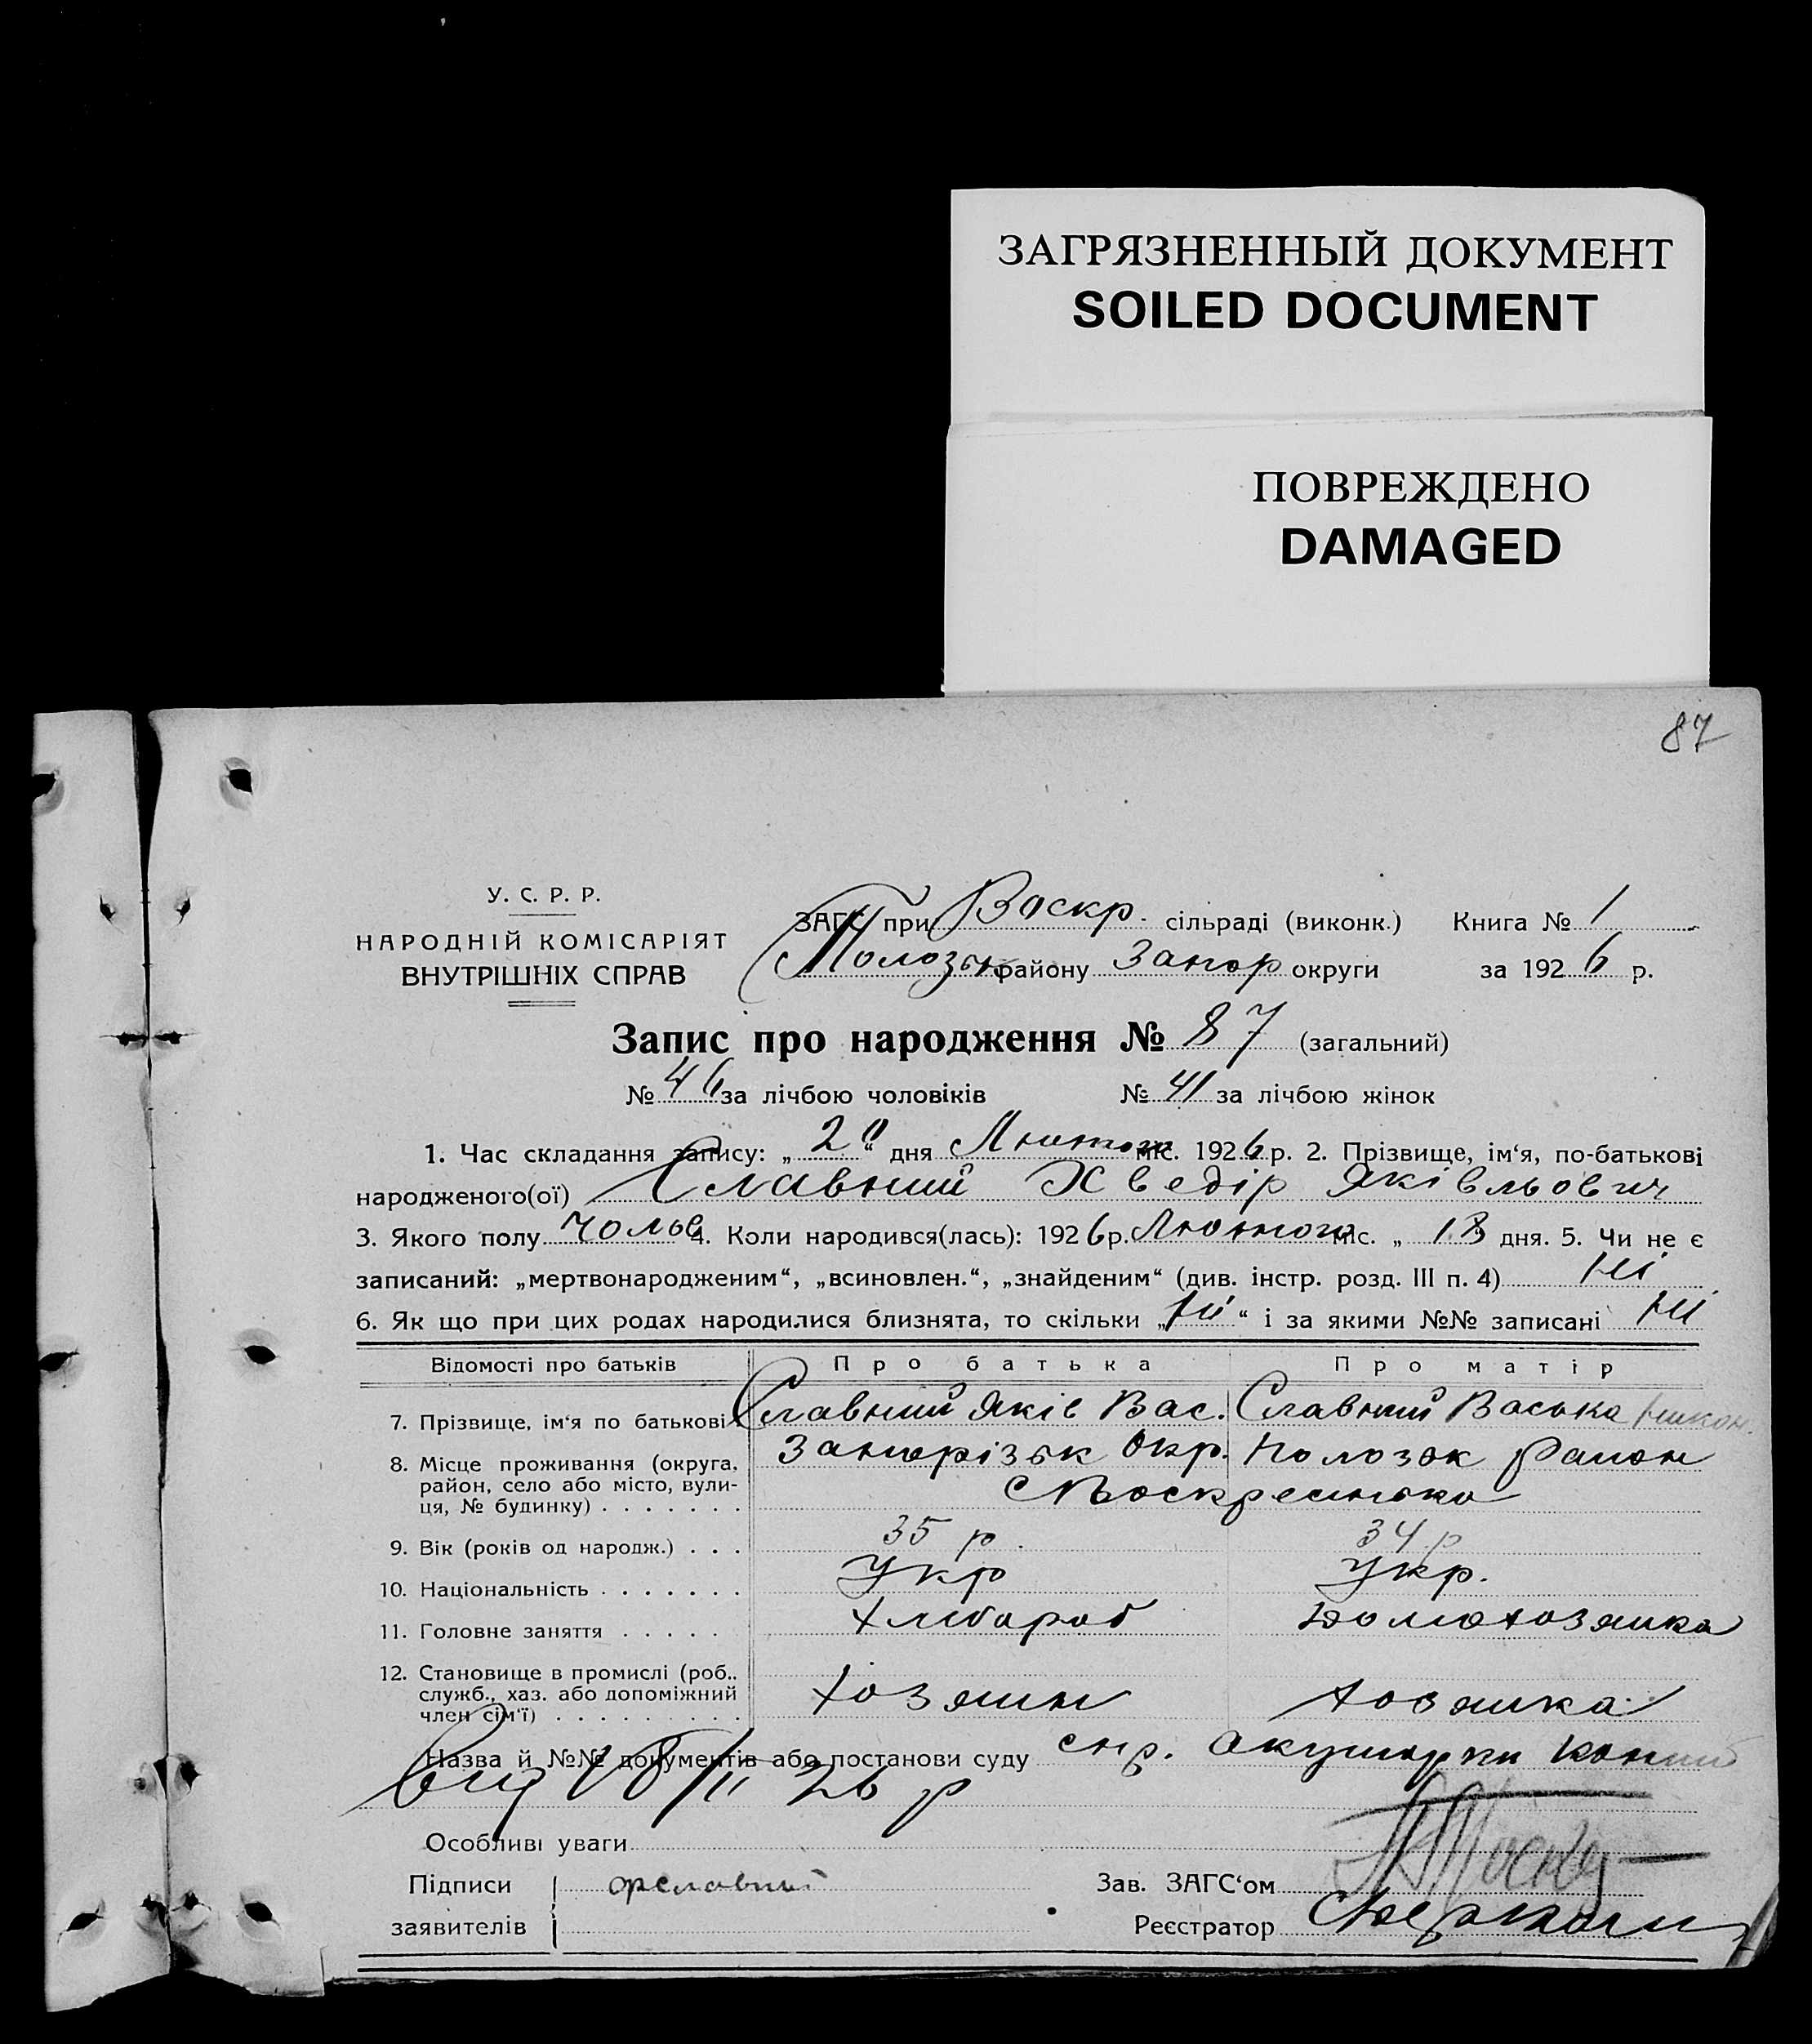 ЗАГРЯЗНЕННЫЙ ДОКУМЕНТ
SOILED DOCUMENT
ПОВРЕЖДЕНО
DAMAGED
87
У. С. Р. Р.
НАРОДНІЙ КОМІСАРІЯТ
ВНУТРІШНІХ СПРАВ
ЗАГС при Воскр. сільраді (виконк.) Книга № 1
Полозьк району Запор округи за 1926 р.
Запис про народження № 87 (загальний)
№ 46 за лічбою чоловіків № 41 за лічбою жінок
1. Час складання запису: „20“ дня Лютого міс. 1926 р. 2. Прізвище, ім‘я, по-батькові
народженого(ої) Славний Хведір Яківльович
3. Якого полу чолов 4. Коли народився(лась): 1926 р. Лютого міс. „ 18 дня. 5. Чи не є
записаний: „мертвонародженим“, „всиновлен.“, „знайденим“ (див. інстр. розд. III п. 4) Ні
6. Як що при цих родах народилися близнята, то скільки „Ні“ і за якими №№ записані Ні
Відомості про батьків Про батька Про матір
7. Прізвище, ім‘я по батькові Славний Яків Вас. Славний Васька
8. Місце проживання (округа, район, село або місто, вулиця, № будинку) Запорізьк Окр. Полозьк Район
с Воскресенька
9. Вік (років од народж.) 35 р. 34 р
10. Національність Укр Укр.
11. Головне заняття Хлібороб Домохозяйка
12. Становище в промислі (роб., служб., хаз. або допоміжний член сім‘ї) Хозяин Хозяйка
Назва й №№ документів або постанови суду спр. Акушерки
Від 18/II 26 р
Особливі уваги
Підписи Зав. ЗАГС‘ом
заявителів Реєстратор